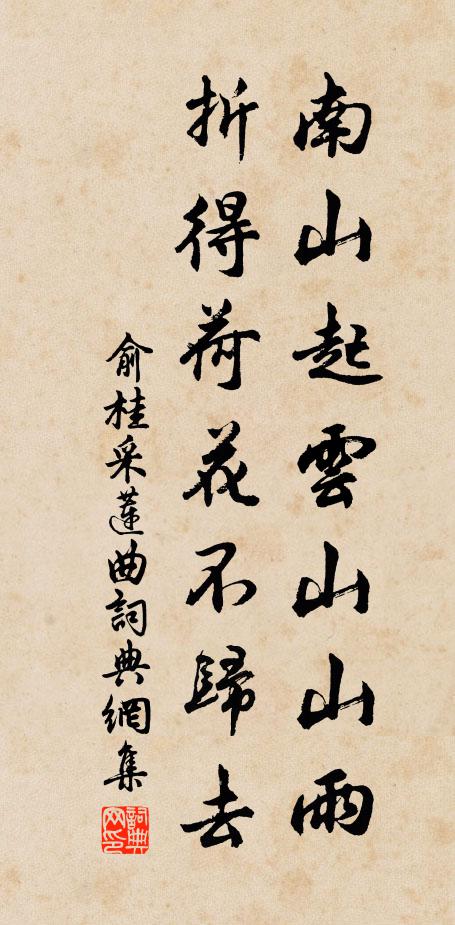 南山起雲山山雨
折得荷花不歸去
俞桂采蓮曲詞典網集
詞典
网印